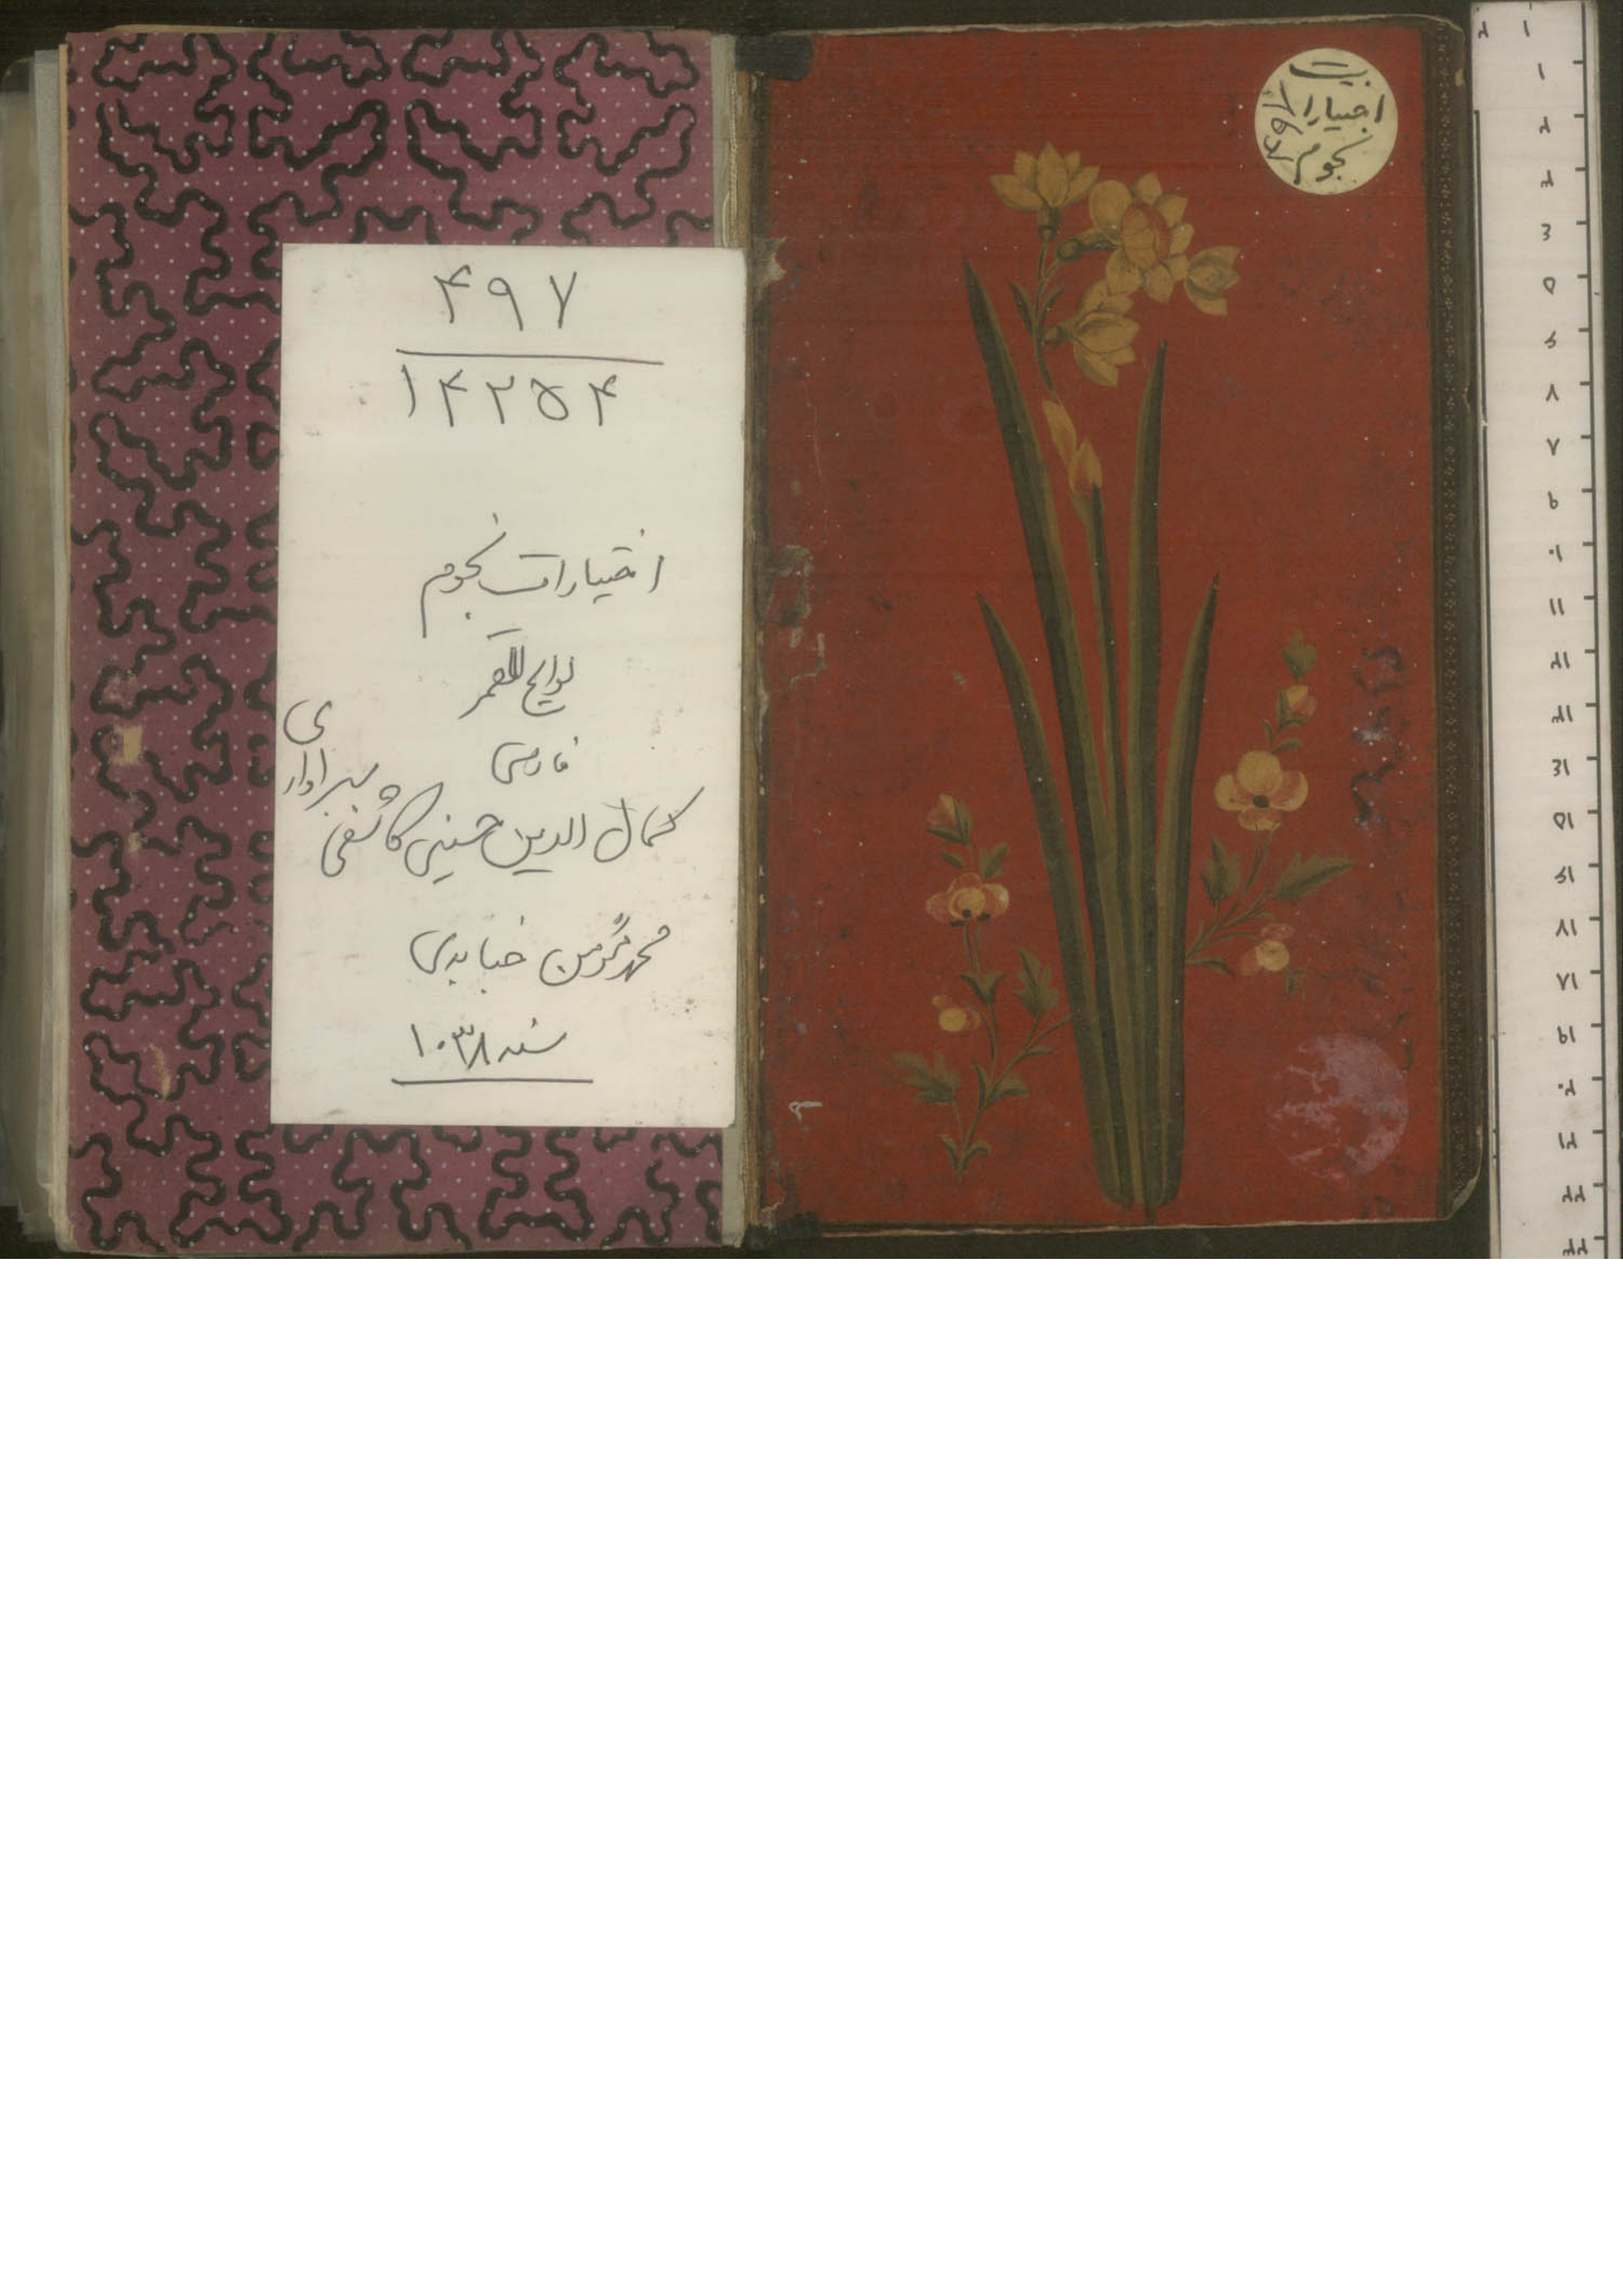 اختیارات
نجوم
۴۹۷
۴۹۷
۱۴۲۵۴
اختیارات نجوم
لوایح القمر
فارسی
کمال الدین حسین کاشفی سبزواری
محمد مومن
سنه ۱۰۳۸